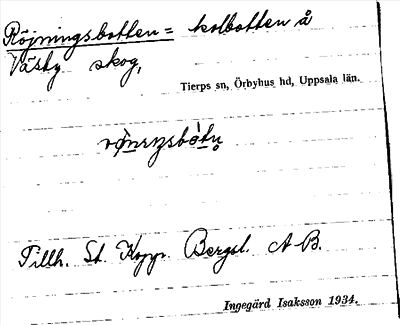 Röjningsbotten = kolbotten å
Väsby skog,
Tierps sn, Örbyhus hd, Uppsala län.
Tillh. St. Kopp. Bergsl. A B.
Ingegärd Isaksson 1934.